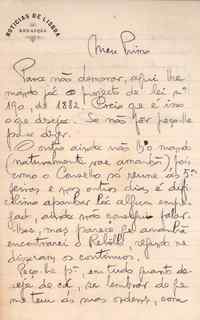 NOTICIAS DE LISBOA
REDACÇÃO
Meu Primo
Para não demorar, aqui lhe
mando já o projecto de lei nº
190, de 1882. Creio que é isso
o que deseja. Se não fôr peço-lhe
para dizer.
O outro ainda não lh'o mando
(naturalmente vae amanhã) pois
como o Conselho só reune ás 5ªs
feiras e nos outros dias é difi-
cilimo apanhar lá algum empre-
gado, ainda não consegui falar-
lhes, mas parece que amanhã
encontrarei o segundo me
disseram os continuos.
Peço-lhe pª em tudo quanto de-
seja de cá, se lembrar de que
me tem ás suas ordens, com